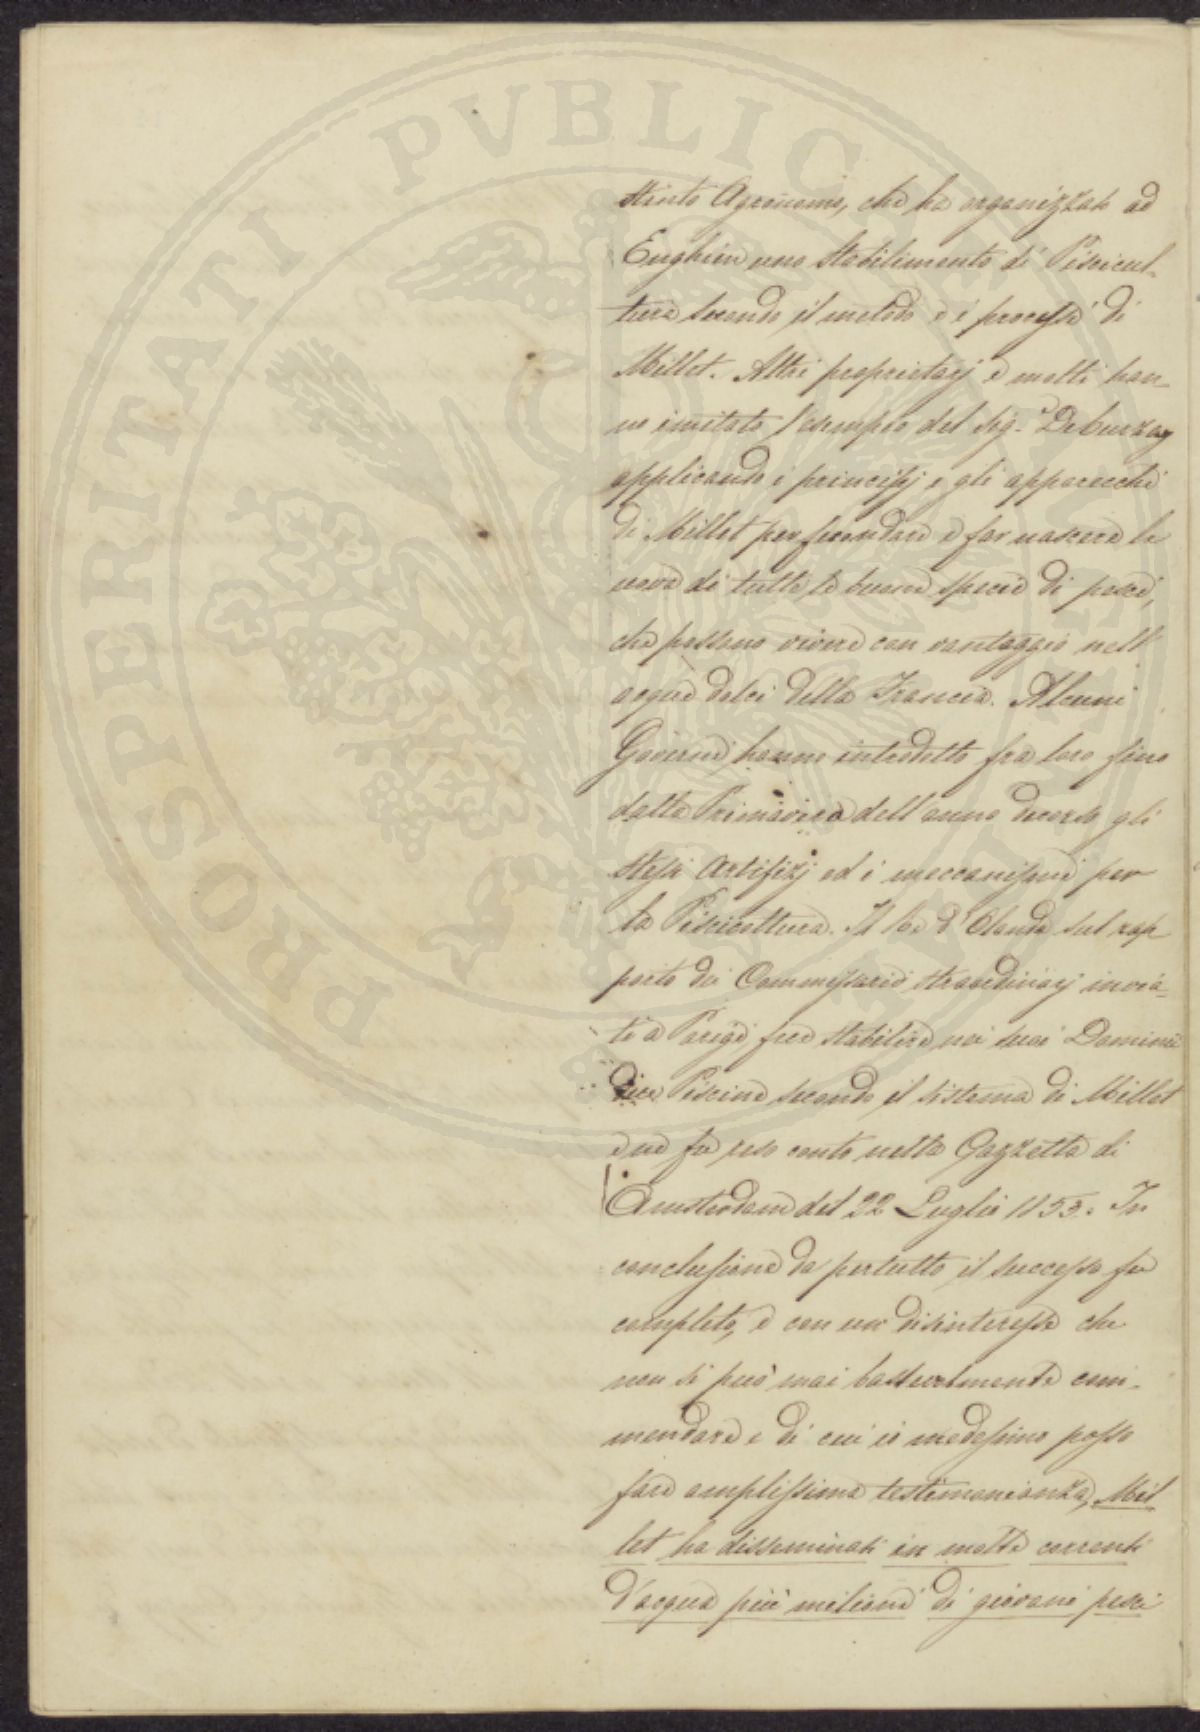 PROSPERITATI PVBLICAE
stinto Agronomo, che ha organizzato ad
Enghien uno Stabilimento di Piscicul-
tura secondo il metodo e i processi di
Millet. Altri proprietarj e molti han-
no imitato l'esempio del Sig.r Deburzay
applicando i principj e gli apparecchi
di Millet per fecondare e far nascere le
uova di tutte le buone specie di pesce,
che possono vivere con vantaggio nell'
acque dolci della Francia. Alcuni
Governi hanno introdotto fra loro fino
dalla Primavera dell'anno decorso gli
stessi Artifizj ed i meccanismi per
la Piscicoltura. Il Re d'Olanda sul rap
porto dei Commissarii straordinarj invia-
ti a Parigi fece stabilire nei suoi Dominii
due Piscine secondo il sistema di Millet
e ne fu reso conto nella Gazzetta di
Amsterdam del 22 Luglio 1853. In
conclusione da pertutto il successo fu
completo, e con un disinteresse che
non si può mai bastantemente com-
mendare e di cui io medesimo posso
fare amplissima testimonianza, Mil
let ha disseminati in molte correnti
d'acqua più milioni di giovani pesci